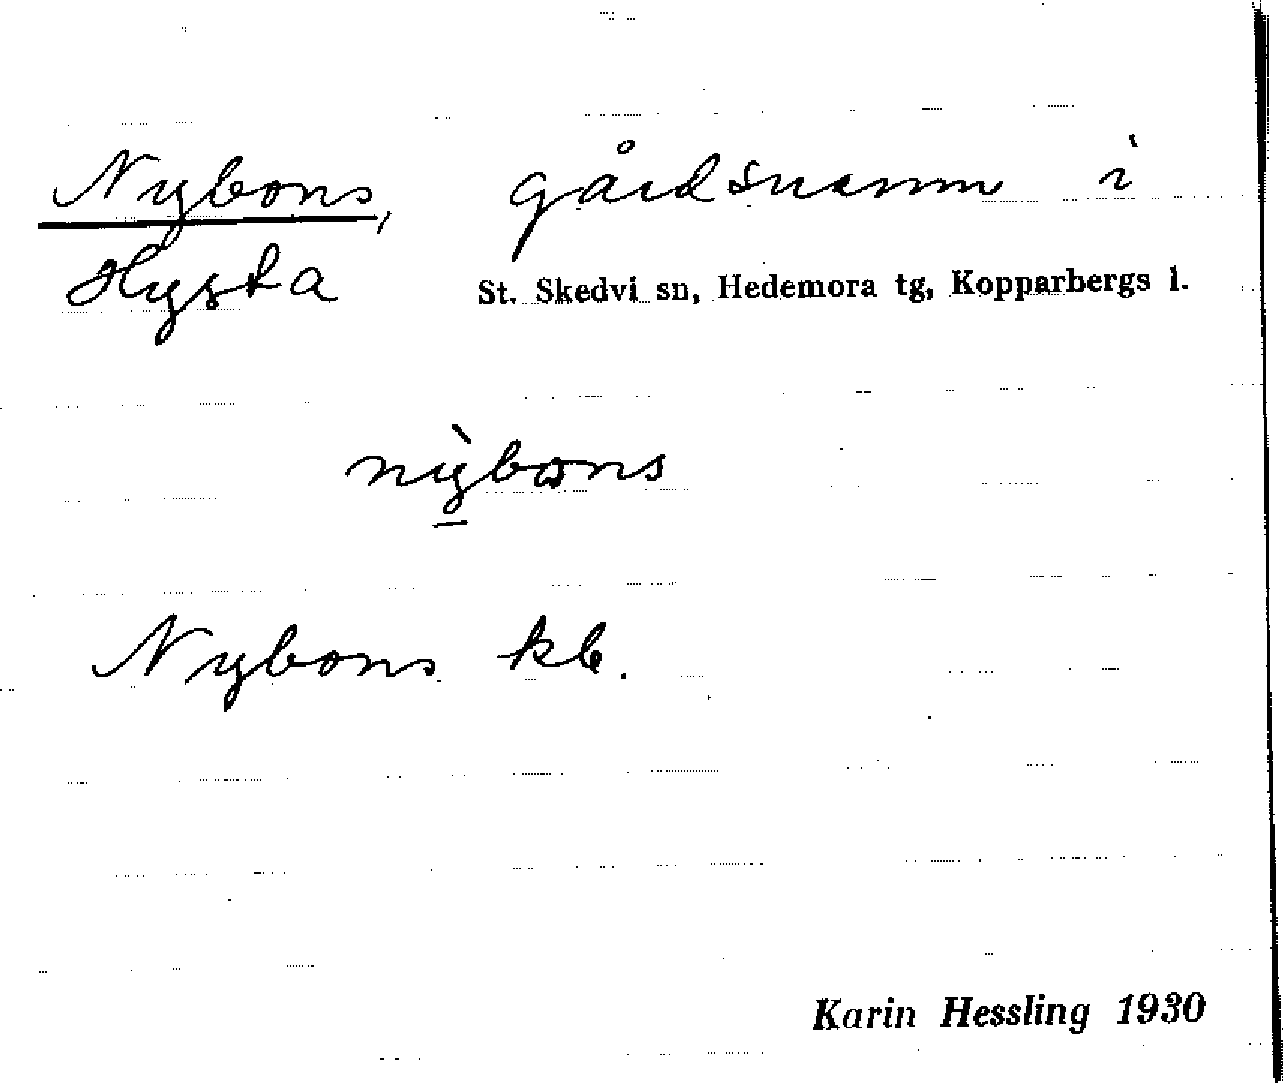 Nybons, gårdsnamn i
Hysta St. Skedvi sn, Hedemora tg, Kopparbergs l.
nỳbɷns
Nybons kb.
Karin Hessling 1930